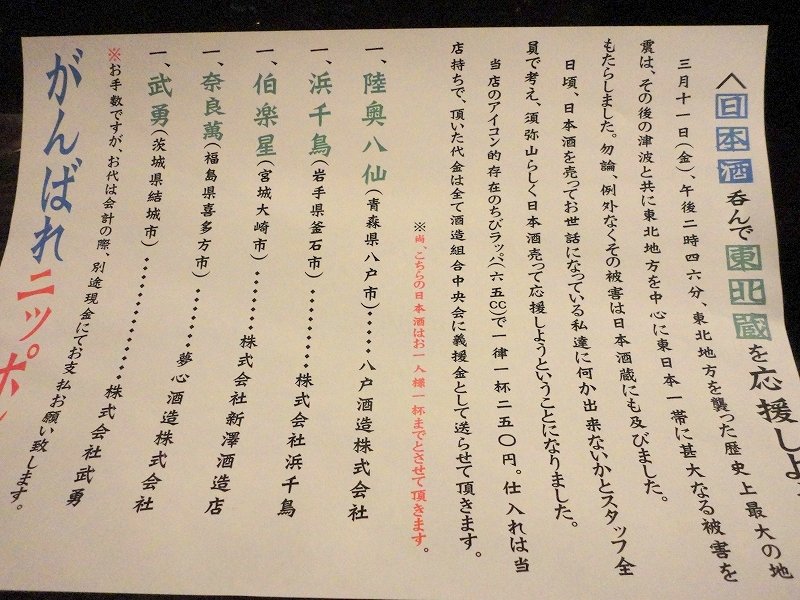 へ日本酒呑んで東北蔵を応援しよ
三月十一日(金)、午後二時四六分、東北地方を襲った歴史上最大の地
震は、その後の津波と共に東北地方を中心に東日本一帯に甚大なる被害を
もたらしました。勿論、例外なくその被害は日本酒蔵にも及びました。
日頃、日本酒を売ってお世話になっている私達に何か出来ないかとスタッフ全
員で考え、須弥山らしく日本酒売って応援しようということになりました。
当店のアイコン的存在のちびラッパ(六五cc)で一律一杯二五〇円。仕入れは当
店持ちで、頂いた代金は全て酒造組合中央会に義援金として送らせて頂きます。
※尚、こちらの日本酒はお一人様一杯までとさせて頂きます。
一、陸奥八仙(青森県八戸市)・・・・・八戸酒造株式会社
一、浜千鳥(岩手県釜石市)・・・・・・・・・株式会社浜千鳥
一、伯楽星(宮城大崎市)・・・・・・・株式会社新澤酒造店
一、奈良萬(福島県喜多方市)・・・・・・夢心酒造株式会社
一、武勇(茨城県結城市)・・・・・・・・・・・株式会社武勇
※お手数ですが、お代は会計の際、別途現金にてお支払お願い致します。
がんばれニッポン